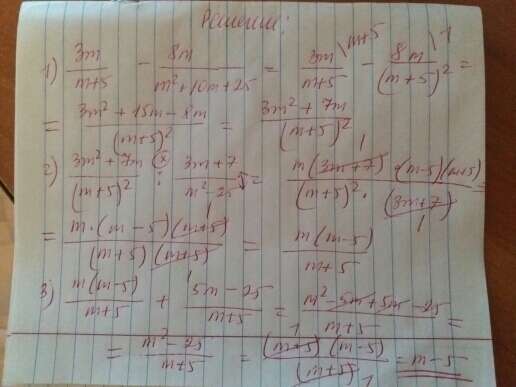 Решение:
1) 3m/(m+5) - 8m/(m²+10m+25) = 3m/(m+5) \m+5 - 8m/(m+5)² \1 =
= (3m²+15m-8m)/(m+5)² = (3m²+7m)/(m+5)²
2) (3m²+7m)/(m+5)² : (3m+7)/(m²-25) = m(3m+7)(m-5)(m+5)/((m+5)²·(3m+7)) =
= m(m-5)(m+5)/((m+5)(m+5)) = m(m-5)/(m+5)
3) m(m-5)/(m+5) + (5m-25)/(m+5) = (m²-5m+5m-25)/(m+5) =
= (m²-25)/(m+5) = (m+5)(m-5)/(m+5) = m-5